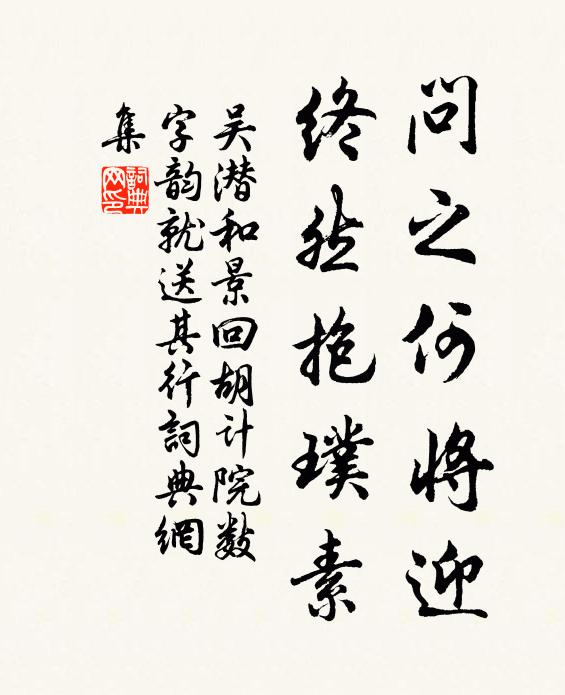 问之何将迎
终然抱璞素
吴潜和景回胡计院数
字韵就送其行詞典網
集
詞典网印